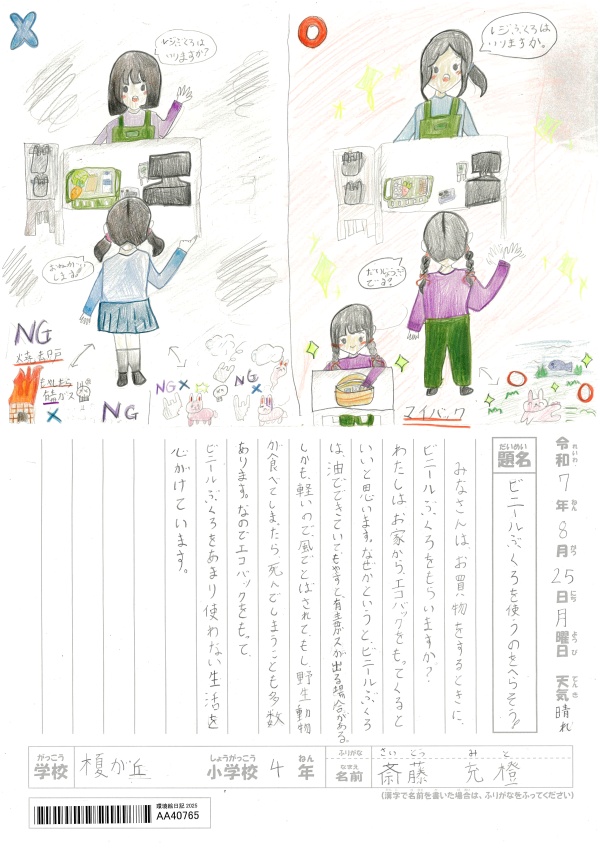 レジぶくろは
いりますか?
おねがい
します!!
NG
焼却戸
もやしたら
有毒ガス
NG
NG
NG
レジぶくろは
いりますか。
だいじょうぶ
です?
マイバック
令和7年8月25日月曜日 天気晴れ
れいわ ねん がつ にち ようび てんき
だいめい
題名 ビニールぶくろを使うのをへらそう!!
みなさんは、お買い物をするときに、
ビニールぶくろをもらいますか?
わたしは、お家から、エコバックをもってくると
いいと思います。なぜかというと、ビニールぶくろ
は、油でできていてもやすと、有毒ガスが出る場合がある。
しかも、軽いので、風でとばされて、もし、野生動物
が食べてしまったら、死んでしまうことも多数
あります。なのでエコバックをもって、
ビニールぶくろをあまり使わない生活を
心がけています。
がっこう しょうがっこう ねん ふりがな さい とう み と
学校 榎が丘 小学校 4年 なまえ 名前 斎藤 充橙
(漢字で名前を書いた場合は、ふりがなをふってください)
環境絵日記 2025
AA40765